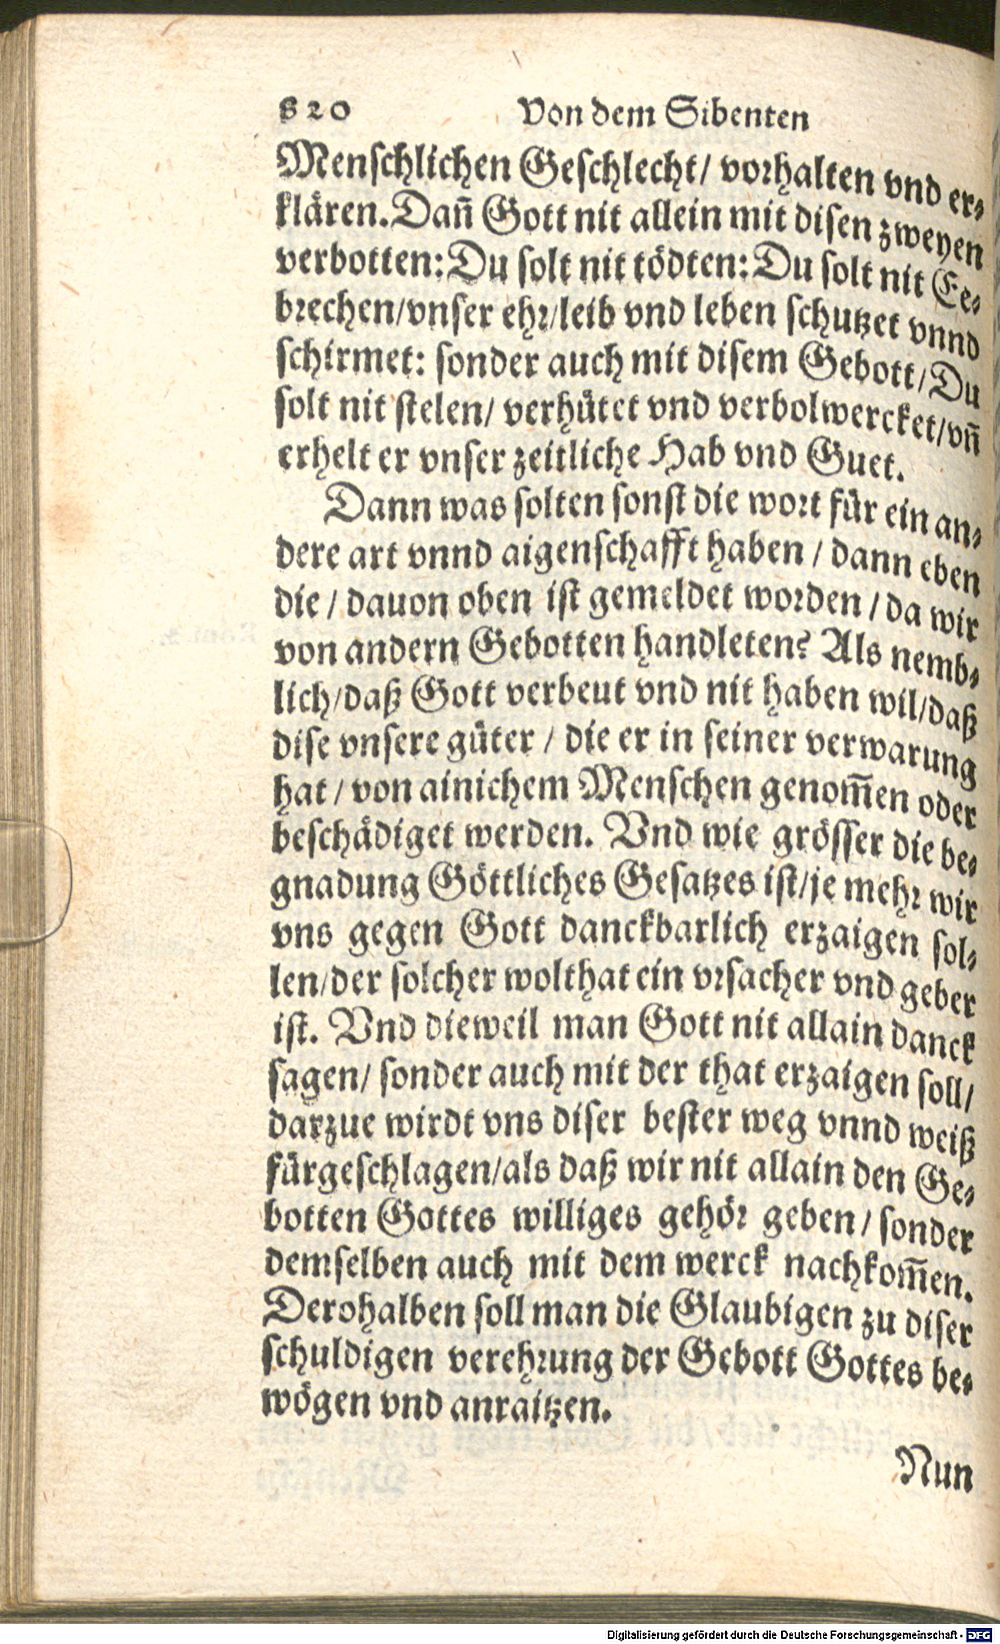 820 Von dem Sibenten
Menschlichen Geschlecht/ vorhalten vnd er⸗
klären. Dañ Gott nit allein mit disen zweyen
verbotten: Du solt nit tödten: Du solt nit Ee⸗
brechen/vnser ehr/leib vnd leben schutzet vnnd
schirmet: sonder auch mit disem Gebott/Du
solt nit stelen/ verhütet vnd verbolwercket/vñ
erhelt er vnser zeitliche Hab vnd Guet.
Dann was solten sonst die wort für ein an⸗
dere art vnnd aigenschafft haben / dann eben
die / dauon oben ist gemeldet worden / da wir
von andern Gebotten handleten? Als nemb⸗
lich/daß Gott verbeut vnd nit haben wil/daß
dise vnsere güter / die er in seiner verwarung
hat / von ainichem Menschen genom̄en oder
beschädiget werden. Vnd wie grösser die be⸗
gnadung Göttliches Gesatzes ist/je mehr wir
vns gegen Gott danckbarlich erzaigen sol⸗
len/der solcher wolthat ein vrsacher vnd geber
ist. Vnd dieweil man Gott nit allain danck
sagen/ sonder auch mit der that erzaigen soll/
darzue wirdt vns diser bester weg vnnd weiß
fürgeschlagen/als daß wir nit allain den Ge⸗
botten Gottes williges gehör geben/ sonder
demselben auch mit dem werck nachkom̄en.
Derohalben soll man die Glaubigen zu diser
schuldigen verehrung der Gebott Gottes be⸗
wögen vnd anraitzen.
Nun
Digitalisierung gefördert durch die Deutsche Forschungsgemeinschaft - DFG